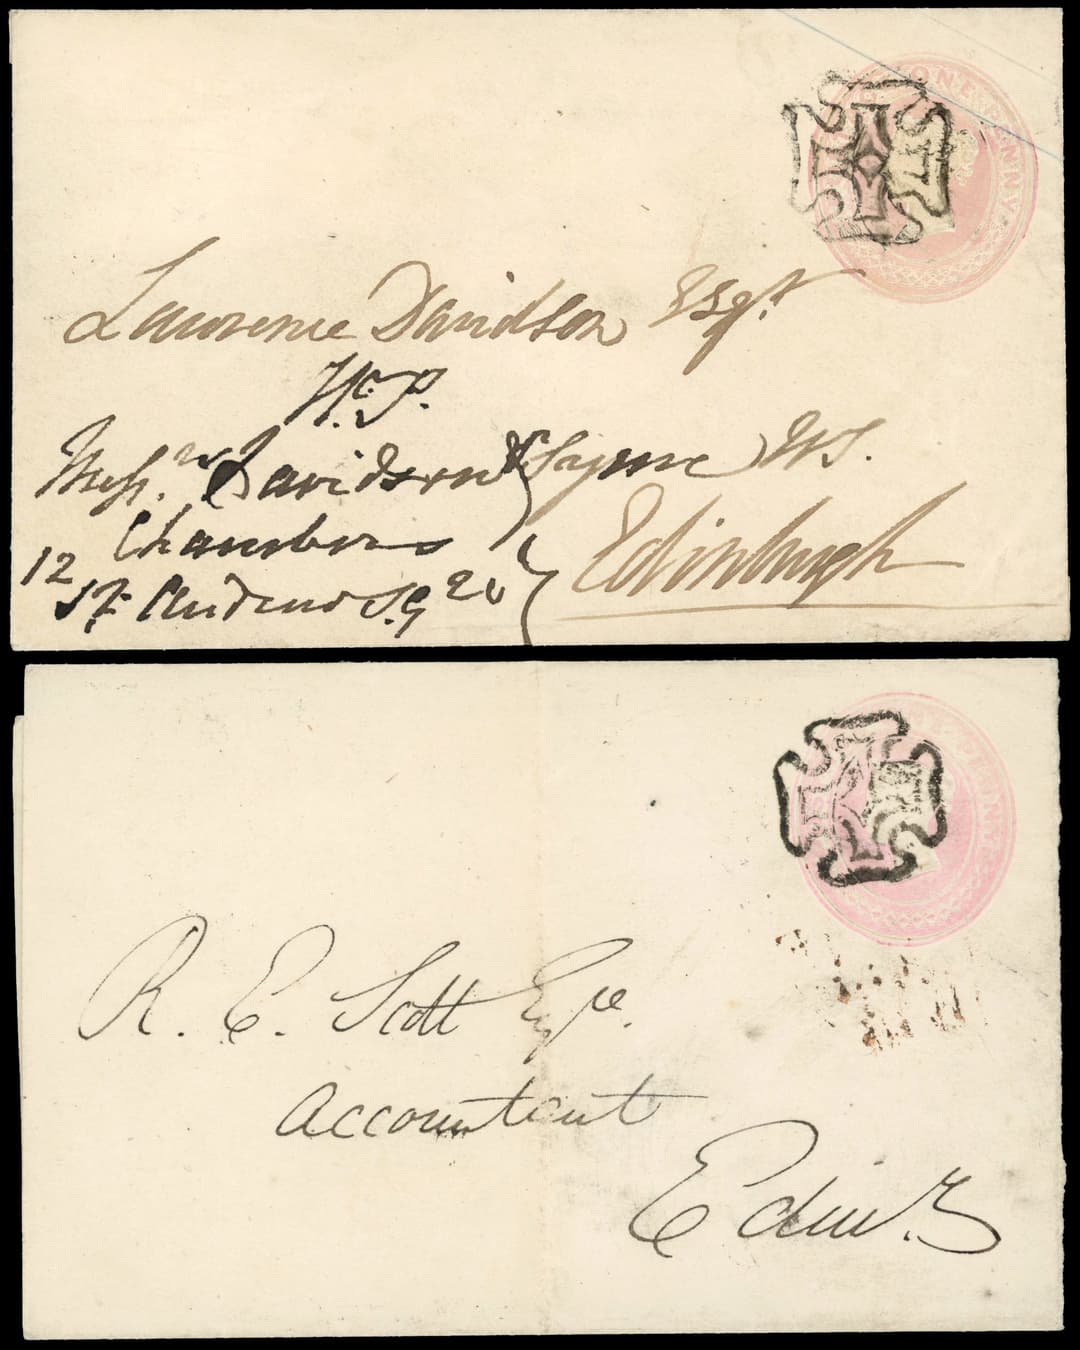 ONE PENNY
Lawrence Davidson Esqr
W. S.
Messrs Davidson & Syme W.S.
Chambers
12
St. Andrew Sq
Edinburgh
ONE PENNY
R. E. Scott Esqre.
Accountant
Edinr.